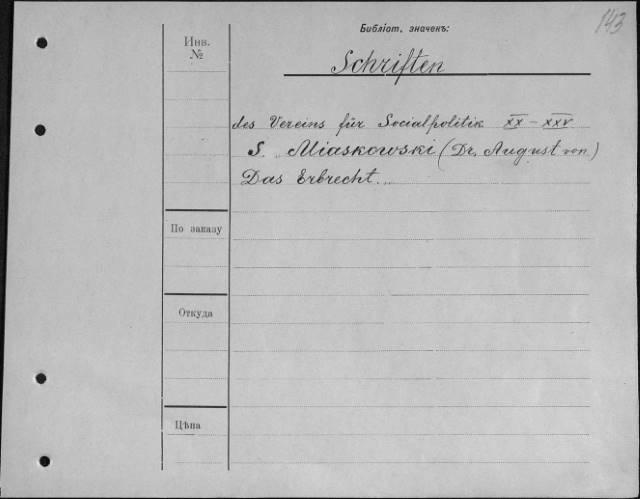 143
Библіот. значекъ:
Инв.
№
Schriften
des Vereins für Socialpolitik XX–XXV
S. Miaskowski (Dr. August von)
Das Erbrecht...
По заказу
Откуда
Цѣна